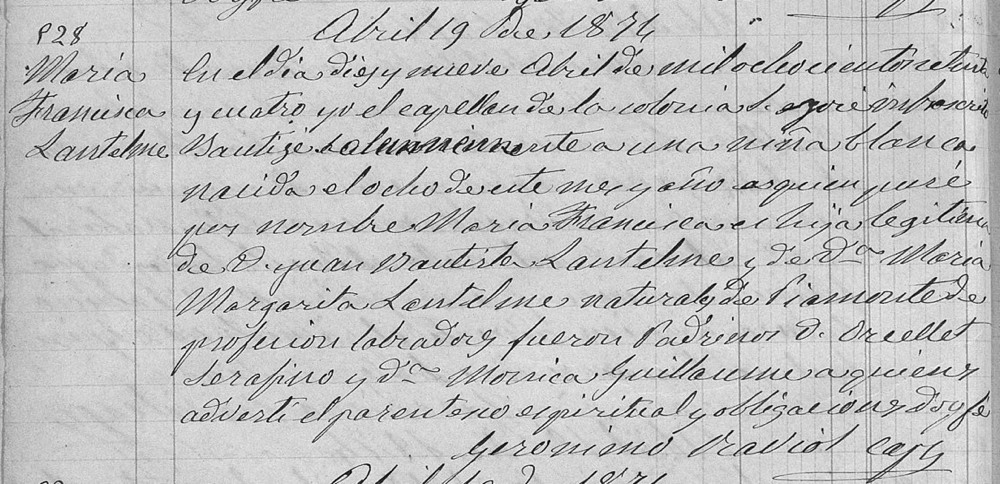 Abril 19 de 1874
P28
Maria
Francisca
Lantelme
En el dia diez y nueve Abril de mil ochocientos setenta
y cuatro yo el capellan de la colonia S. José infrascrito
Bautizé solemnemente a una niña blanca
nacida el ocho de este mes y año a quien pusé
por nombre Maria Francisca es hija legitima
de D. Juan Bautista Lantelme y de Dña Maria
Margarita Lantelme naturales de Piamonte de
profesion labradores fueron Padrinos D.
Serafino y dña Monica Guillaume a quienes
adverti el parentesco espiritual y obligaciones doy fe
Geronimo